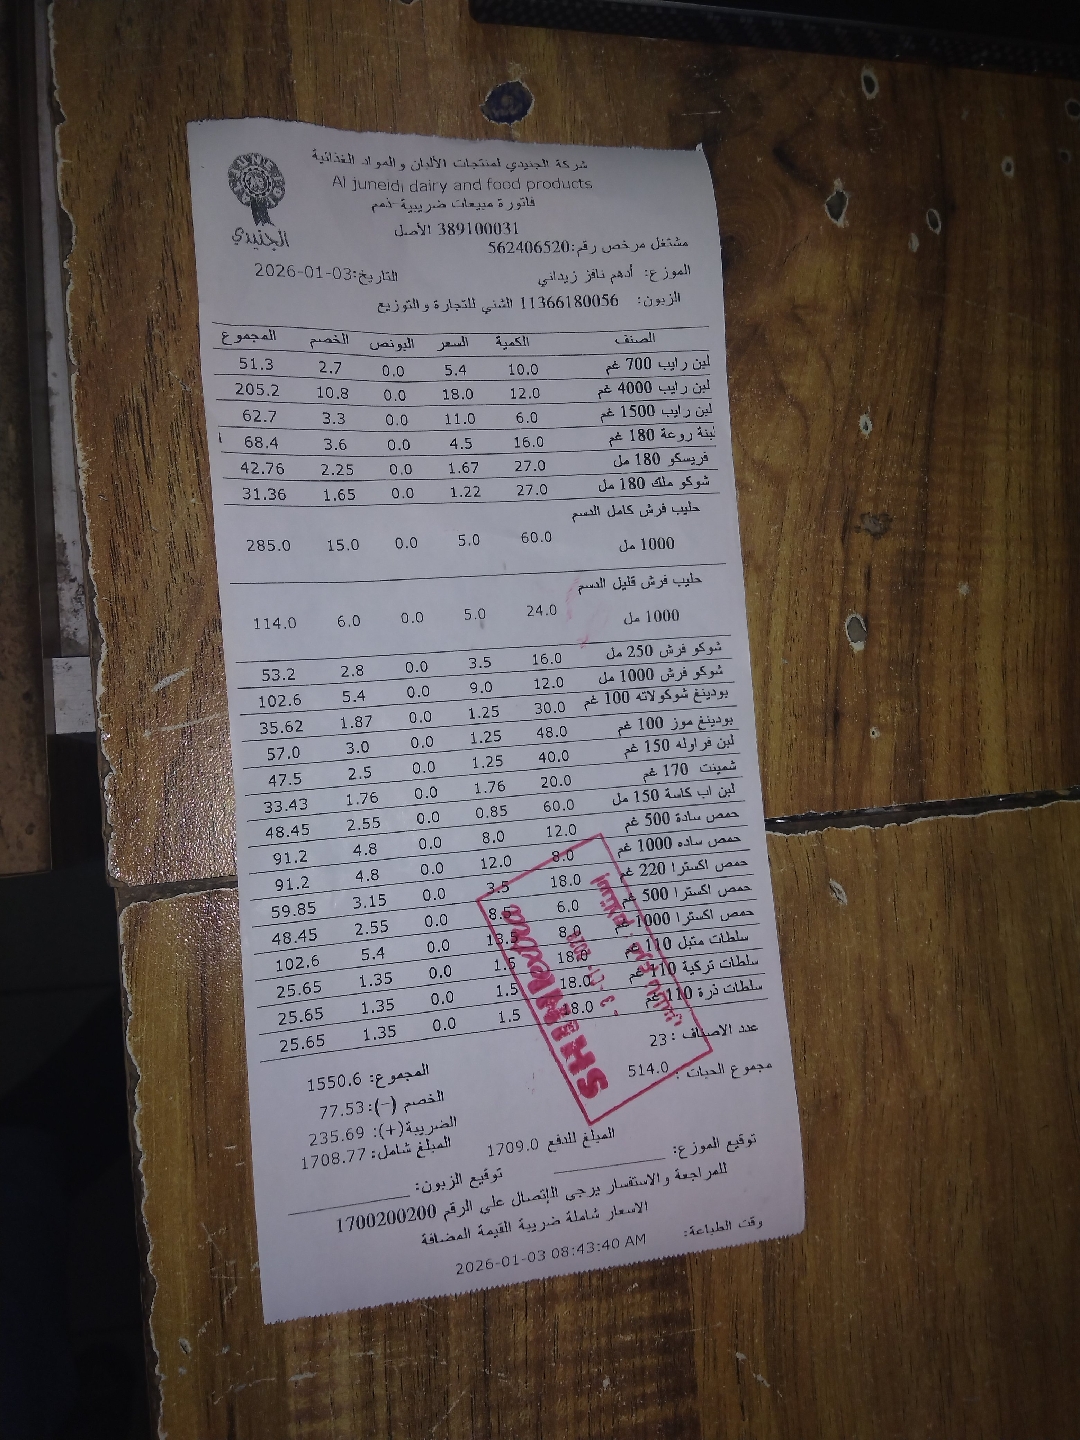 شركة الجنيدي لمنتجات الألبان والمواد الغذائية
Al juneidi dairy and food products
فاتورة مبيعات ضريبية-ذمم
389100031 الأصل
الجنيدي
مشتغل مرخص رقم:562406520
الموزع: أدهم نافز زيداني التاريخ:2026-01-03
الزبون: 11366180056 الشني للتجارة والتوزيع
الصنف الكمية السعر البونص الخصم المجموع
لبن رايب 700 غم 10.0 5.4 0.0 2.7 51.3
لبن رايب 4000 غم 12.0 18.0 0.0 10.8 205.2
لبن رايب 1500 غم 6.0 11.0 0.0 3.3 62.7
لبنة روعة 180 غم 16.0 4.5 0.0 3.6 68.4
فريسكو 180 مل 27.0 1.67 0.0 2.25 42.76
شوكو ملك 180 مل 27.0 1.22 0.0 1.65 31.36
حليب فرش كامل الدسم
1000 مل 60.0 5.0 0.0 15.0 285.0
حليب فرش قليل الدسم
1000 مل 24.0 5.0 0.0 6.0 114.0
شوكو فرش 250 مل 16.0 3.5 0.0 2.8 53.2
شوكو فرش 1000 مل 12.0 9.0 0.0 5.4 102.6
بودينغ شوكولاته 100 غم 30.0 1.25 0.0 1.87 35.62
بودينغ موز 100 غم 48.0 1.25 0.0 3.0 57.0
لبن فراوله 150 غم 40.0 1.25 0.0 2.5 47.5
شمينت 170 غم 20.0 1.76 0.0 1.76 33.43
لبن اب كاسة 150 مل 60.0 0.85 0.0 2.55 48.45
حمص سادة 500 غم 12.0 8.0 0.0 4.8 91.2
حمص ساده 1000 غم 8.0 12.0 0.0 4.8 91.2
حمص اكسترا 220 غم 18.0 3.5 0.0 3.15 59.85
حمص اكسترا 500 غم 6.0 8.5 0.0 2.55 48.45
حمص اكسترا 1000 غم 8.0 13.5 0.0 5.4 102.6
سلطات متبل 110 غم 18.0 1.5 0.0 1.35 25.65
سلطات تركية 110 غم 18.0 1.5 0.0 1.35 25.65
سلطات ذرة 110 غم 18.0 1.5 0.0 1.35 25.65
عدد الاصناف : 23
مجموع الحبات : 514.0
المجموع: 1550.6
الخصم (-): 77.53
الضريبة(+): 235.69
المبلغ شامل: 1708.77
المبلغ للدفع 1709.0
توقيع الموزع:
توقيع الزبون:
للمراجعة والاستفسار يرجى الإتصال على الرقم 1700200200
الاسعار شاملة ضريبة القيمة المضافة
وقت الطباعة: 2026-01-03 08:43:40 AM